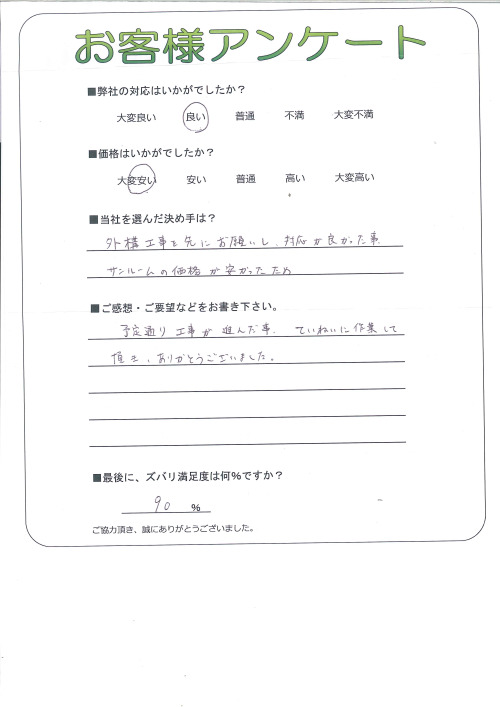 お客様アンケート
■弊社の対応はいかがでしたか？
大変良い 良い 普通 不満 大変不満
■価格はいかがでしたか？
大変安い 安い 普通 高い 大変高い
■当社を選んだ決め手は？
外構工事を先にお願いし、対応が良かった事、
サンルームの価格が安かったため
■ご感想・ご要望などをお書き下さい。
予定通り工事が進んだ事、ていねいに作業して
頂き、ありがとうございました。
■最後に、ズバリ満足度は何%ですか？
90 %
ご協力頂き、誠にありがとうございました。